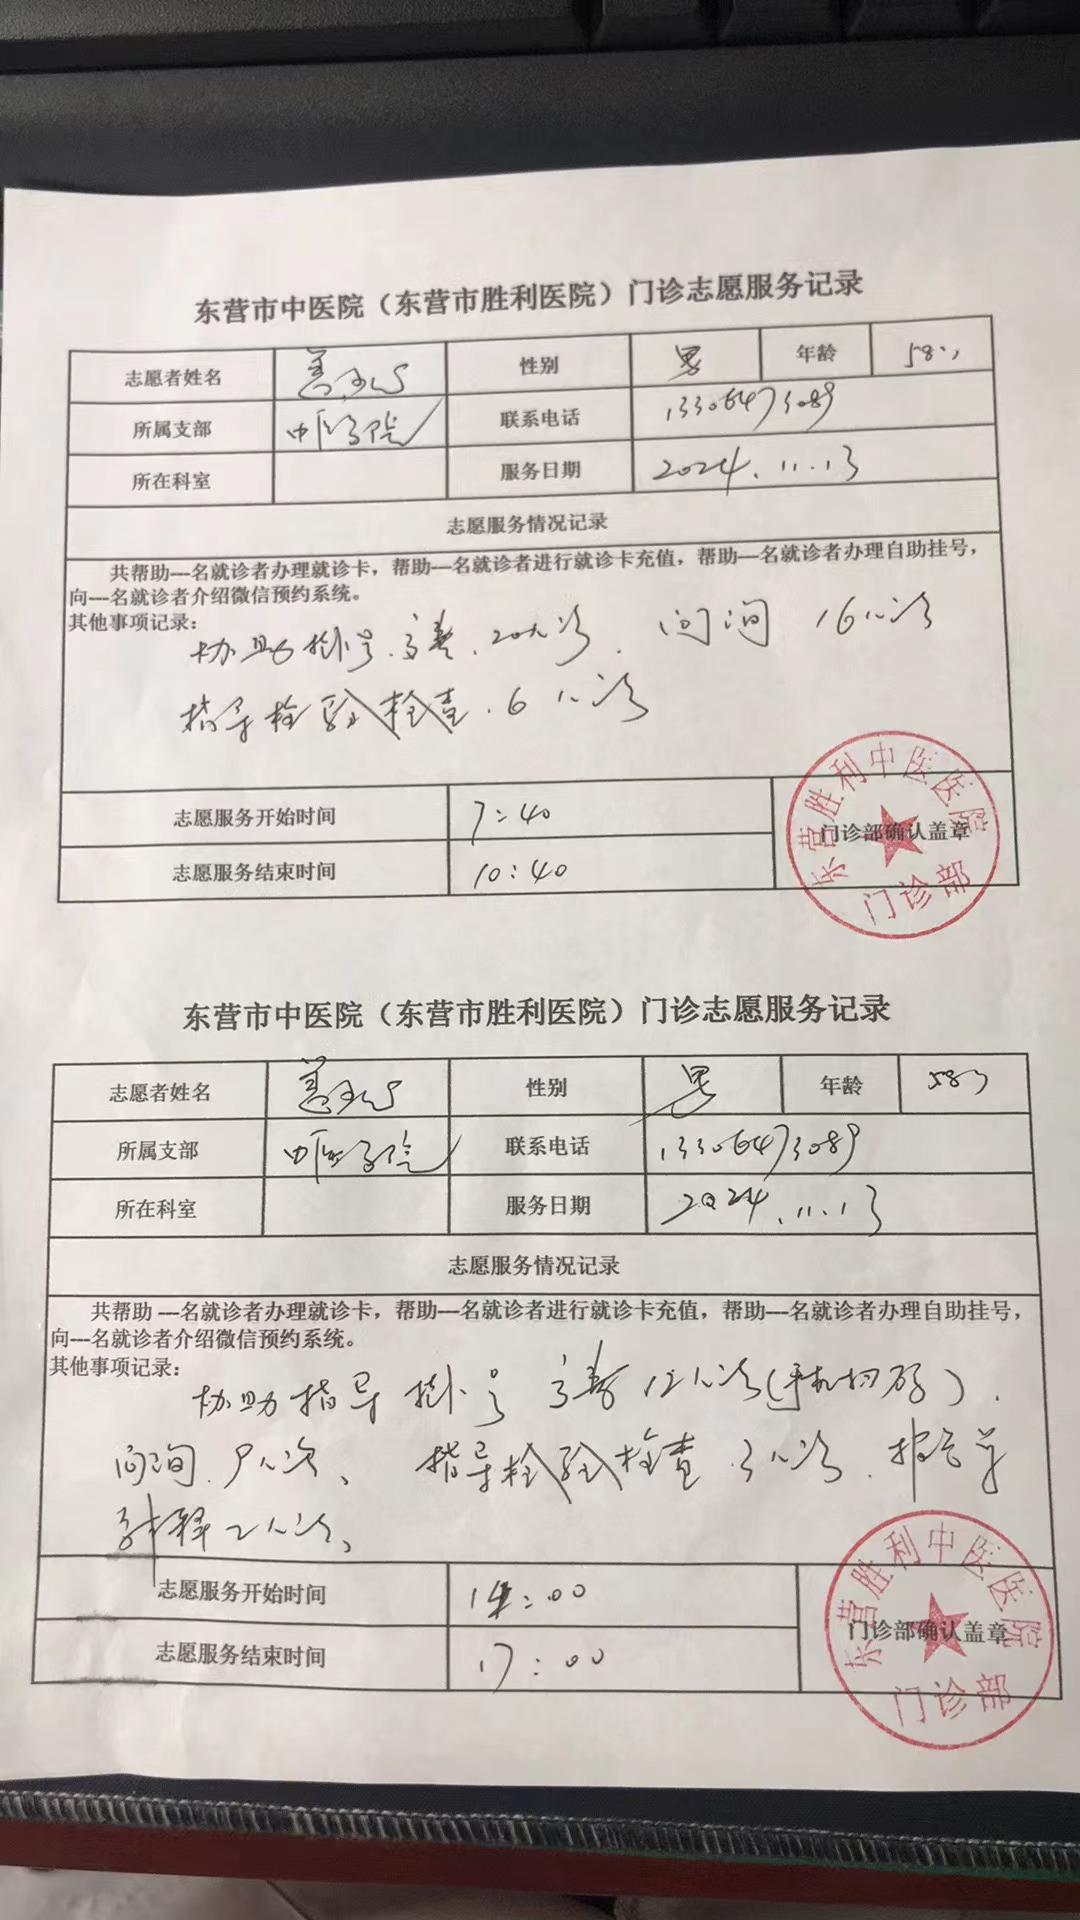 东营市中医院（东营市胜利医院）门诊志愿服务记录
志愿者姓名 性别 男 年龄 58岁
所属支部 中医学院 联系电话 13306473089
所在科室 服务日期 2024.11.13
志愿服务情况记录
共帮助---名就诊者办理就诊卡，帮助---名就诊者进行就诊卡充值，帮助---名就诊者办理自助挂号，
向---名就诊者介绍微信预约系统。
其他事项记录：
协助挂号、缴费、20人次、问询 16人次
指导检验检查、6人次
志愿服务开始时间 7:40
志愿服务结束时间 10:40
门诊部确认盖章
东营胜利中医医院
门诊部
东营市中医院（东营市胜利医院）门诊志愿服务记录
志愿者姓名 性别 男 年龄 58岁
所属支部 中医学院 联系电话 13306473089
所在科室 服务日期 2024.11.13
志愿服务情况记录
共帮助---名就诊者办理就诊卡，帮助---名就诊者进行就诊卡充值，帮助---名就诊者办理自助挂号，
向---名就诊者介绍微信预约系统。
其他事项记录：
协助指导挂号 缴费12人次(手机扫码)、
问询、9人次、指导检验检查、3人次、报告单
解释2人次、
志愿服务开始时间 14:00
志愿服务结束时间 17:00
门诊部确认盖章
东营胜利中医医院
门诊部